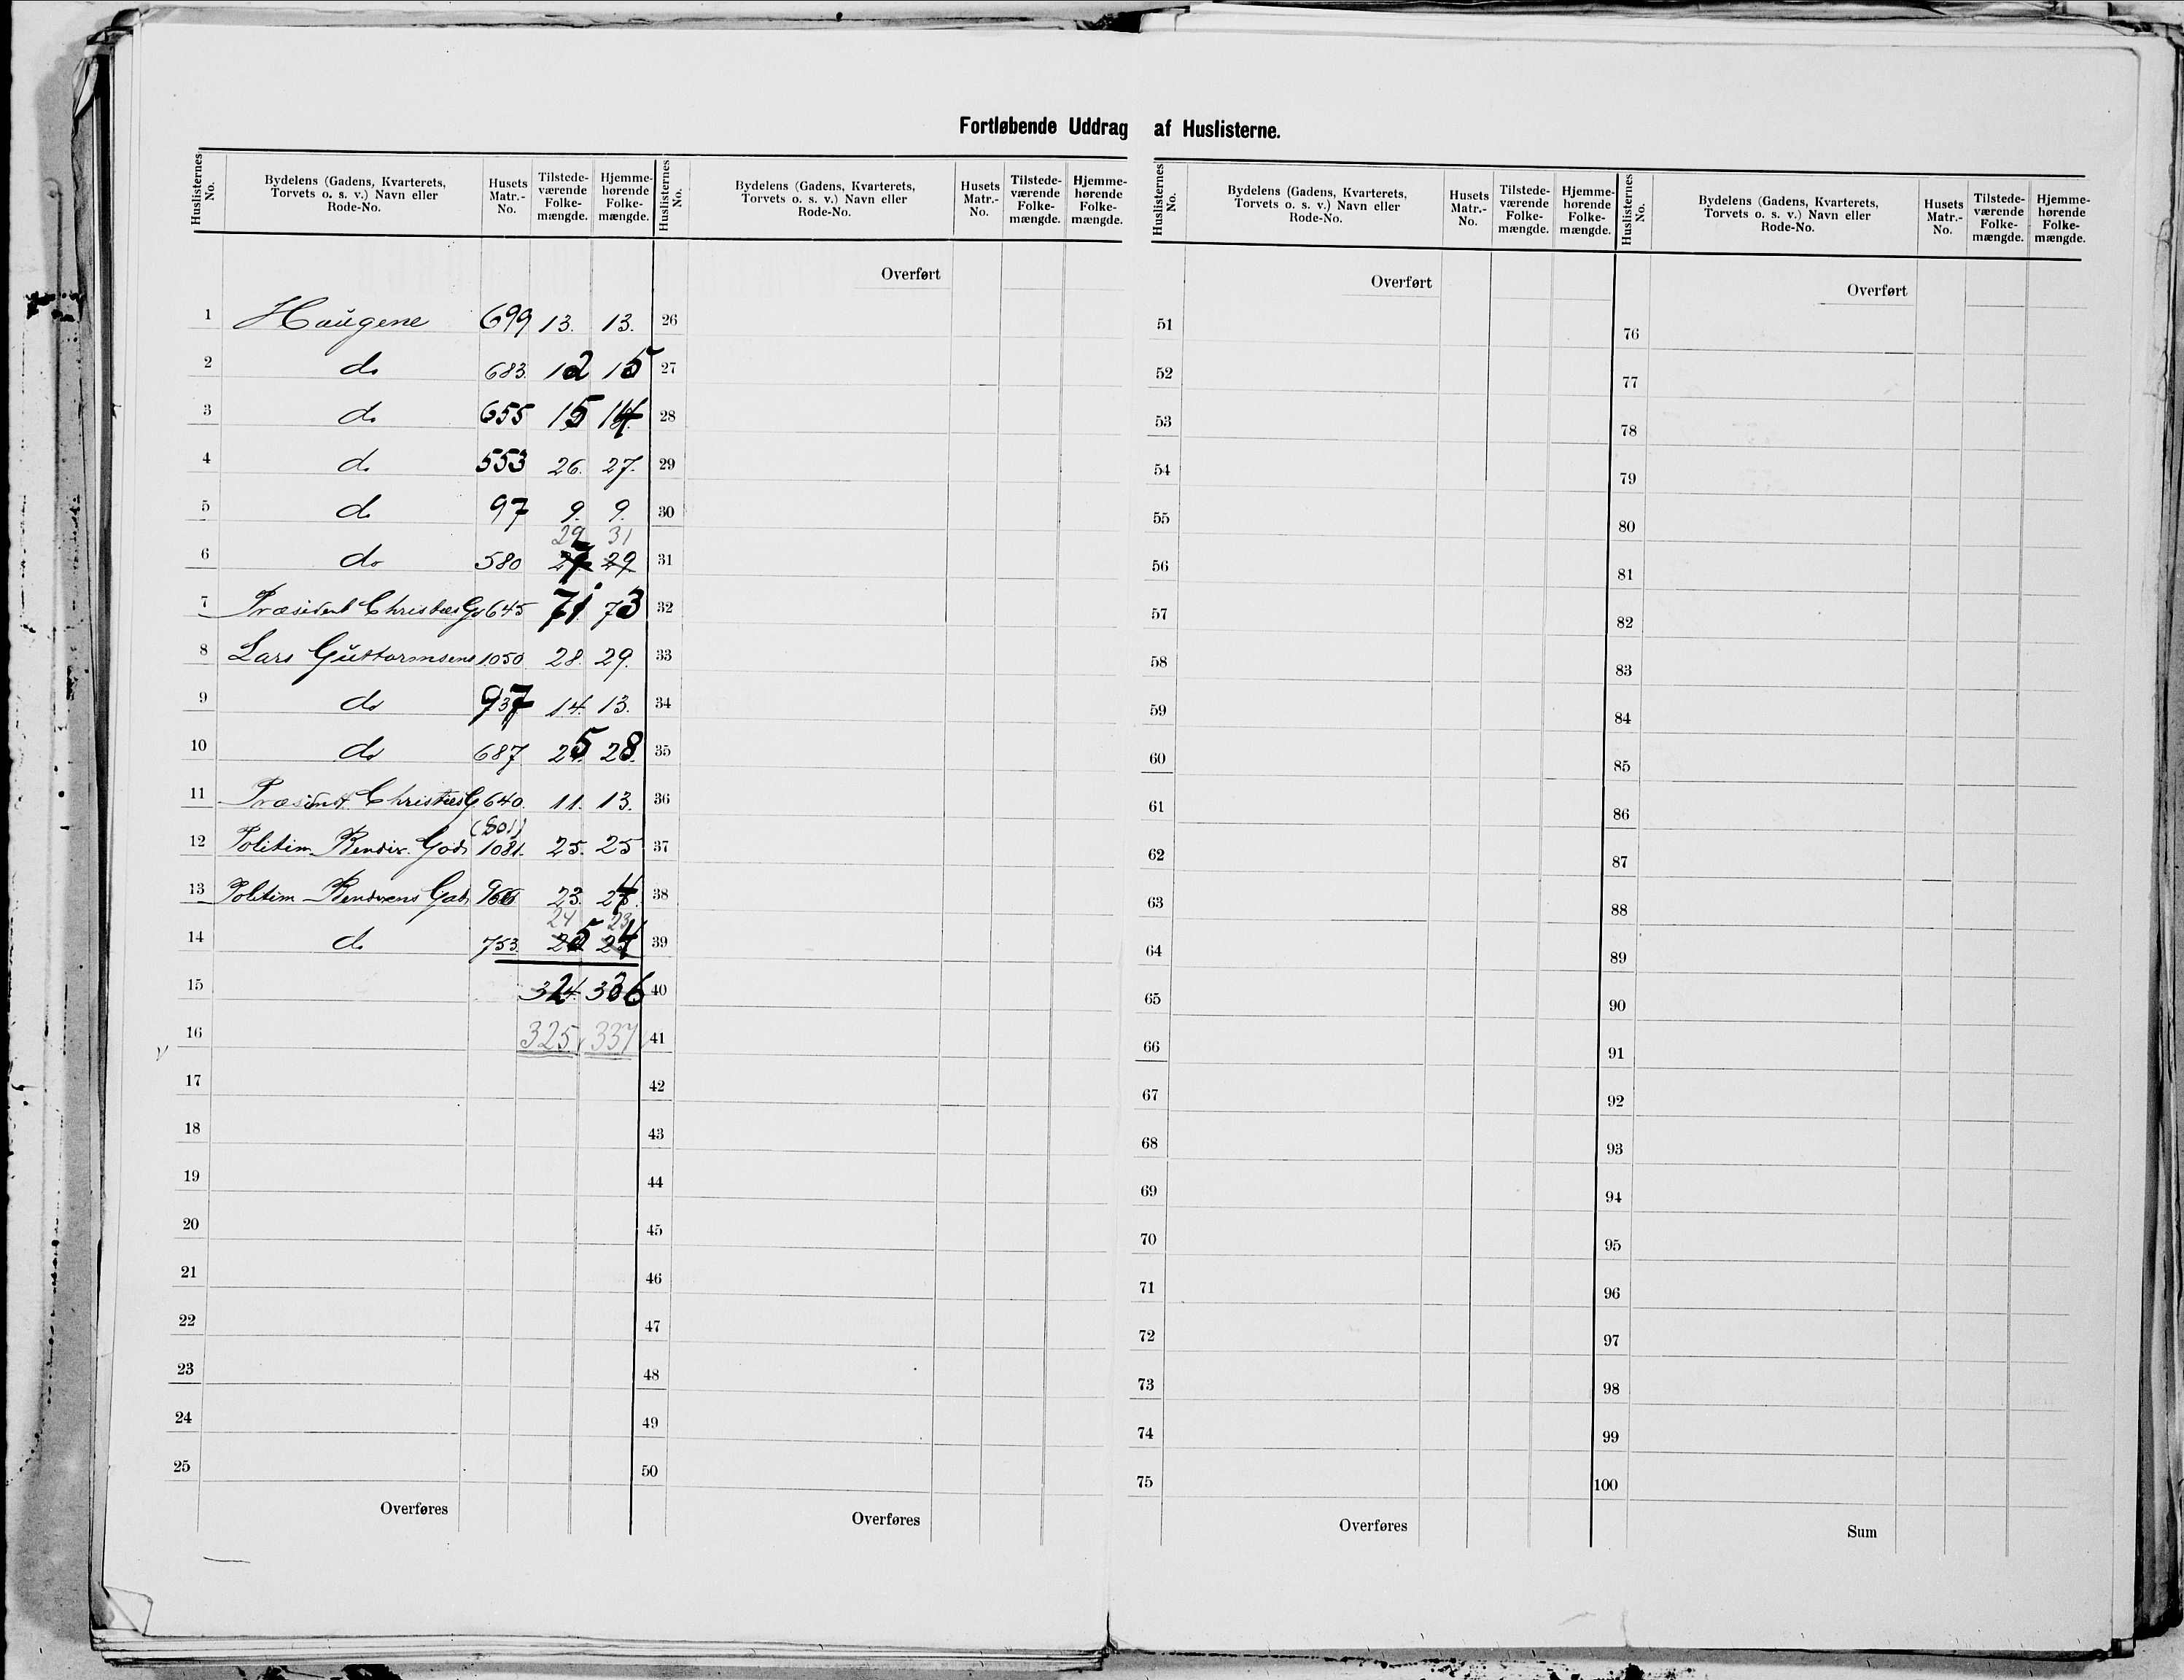 Fortløbende Uddrag af Huslisterne.
Huslisternes No. Bydelens (Gadens, Kvarterets, Torvets o. s. v.) Navn eller Rode-No. Husets Matr.-No. Tilstedeværende Folkemængde. Hjemmehørende Folkemængde.
1 Haugene 699 13. 13.
2 do 683. 12 15
3 do 655 15 14
4 do 553 26. 27.
5 do 97 9. 9.
29 31
6 do 580 27 29
7 Præsident Christies G 645 71 73
8 Lars Guttormsens 1050 28. 29.
9 do 937 14. 13.
10 do 687 25 28.
11 Præsident Christies G 640. 11. 13.
(801)
12 Politim Bendix. Gade 1081. 25. 25
13 Politim Bendixens Gade 23. 24
24 23
14 do 753. 25 24
15 324 336
16 325 337
17
18
19
20
21
22
23
24
25
Overføres
Huslisternes No. Bydelens (Gadens, Kvarterets, Torvets o. s. v.) Navn eller Rode-No. Husets Matr.-No. Tilstedeværende Folkemængde. Hjemmehørende Folkemængde.
Overført
26
27
28
29
30
31
32
33
34
35
36
37
38
39
40
41
42
43
44
45
46
47
48
49
50
Overføres
Huslisternes No. Bydelens (Gadens, Kvarterets, Torvets o. s. v.) Navn eller Rode-No. Husets Matr.-No. Tilstedeværende Folkemængde. Hjemmehørende Folkemængde.
Overført
51
52
53
54
55
56
57
58
59
60
61
62
63
64
65
66
67
68
69
70
71
72
73
74
75
Overføres
Huslisternes No. Bydelens (Gadens, Kvarterets, Torvets o. s. v.) Navn eller Rode-No. Husets Matr.-No. Tilstedeværende Folkemængde. Hjemmehørende Folkemængde.
Overført
76
77
78
79
80
81
82
83
84
85
86
87
88
89
90
91
92
93
94
95
96
97
98
99
100
Sum